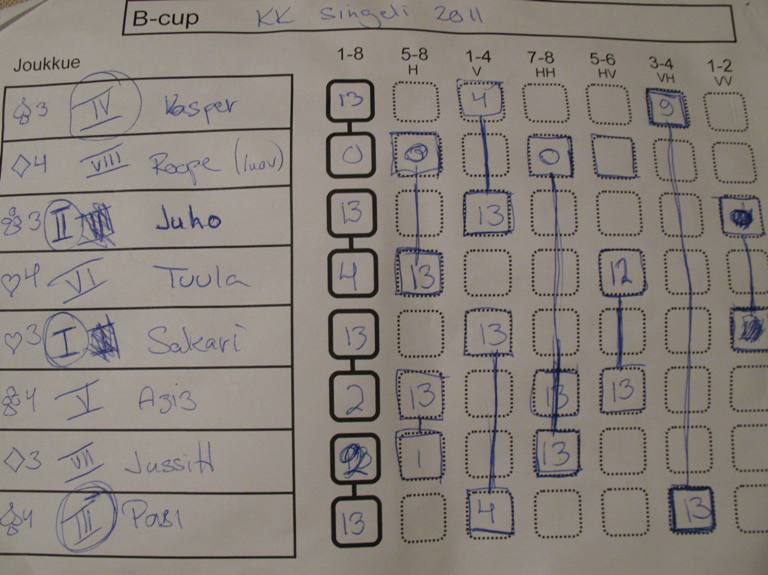 B-cup KK Singeli 2011
Joukkue 1-8 5-8 1-4 7-8 5-6 3-4 1-2
H V HH HV VH VV
♣3 IV Kasper 13 4 9
♢4 VIII Roope (luov) 0 0
♣3 II Juho 13 13
♡4 VI Tuula 4 13 12
♡3 I Sakari 13 13
♣4 V Aziz 2 13 13 13
♢3 VII JussiH 1 13
♣4 III Pasi 13 4 13